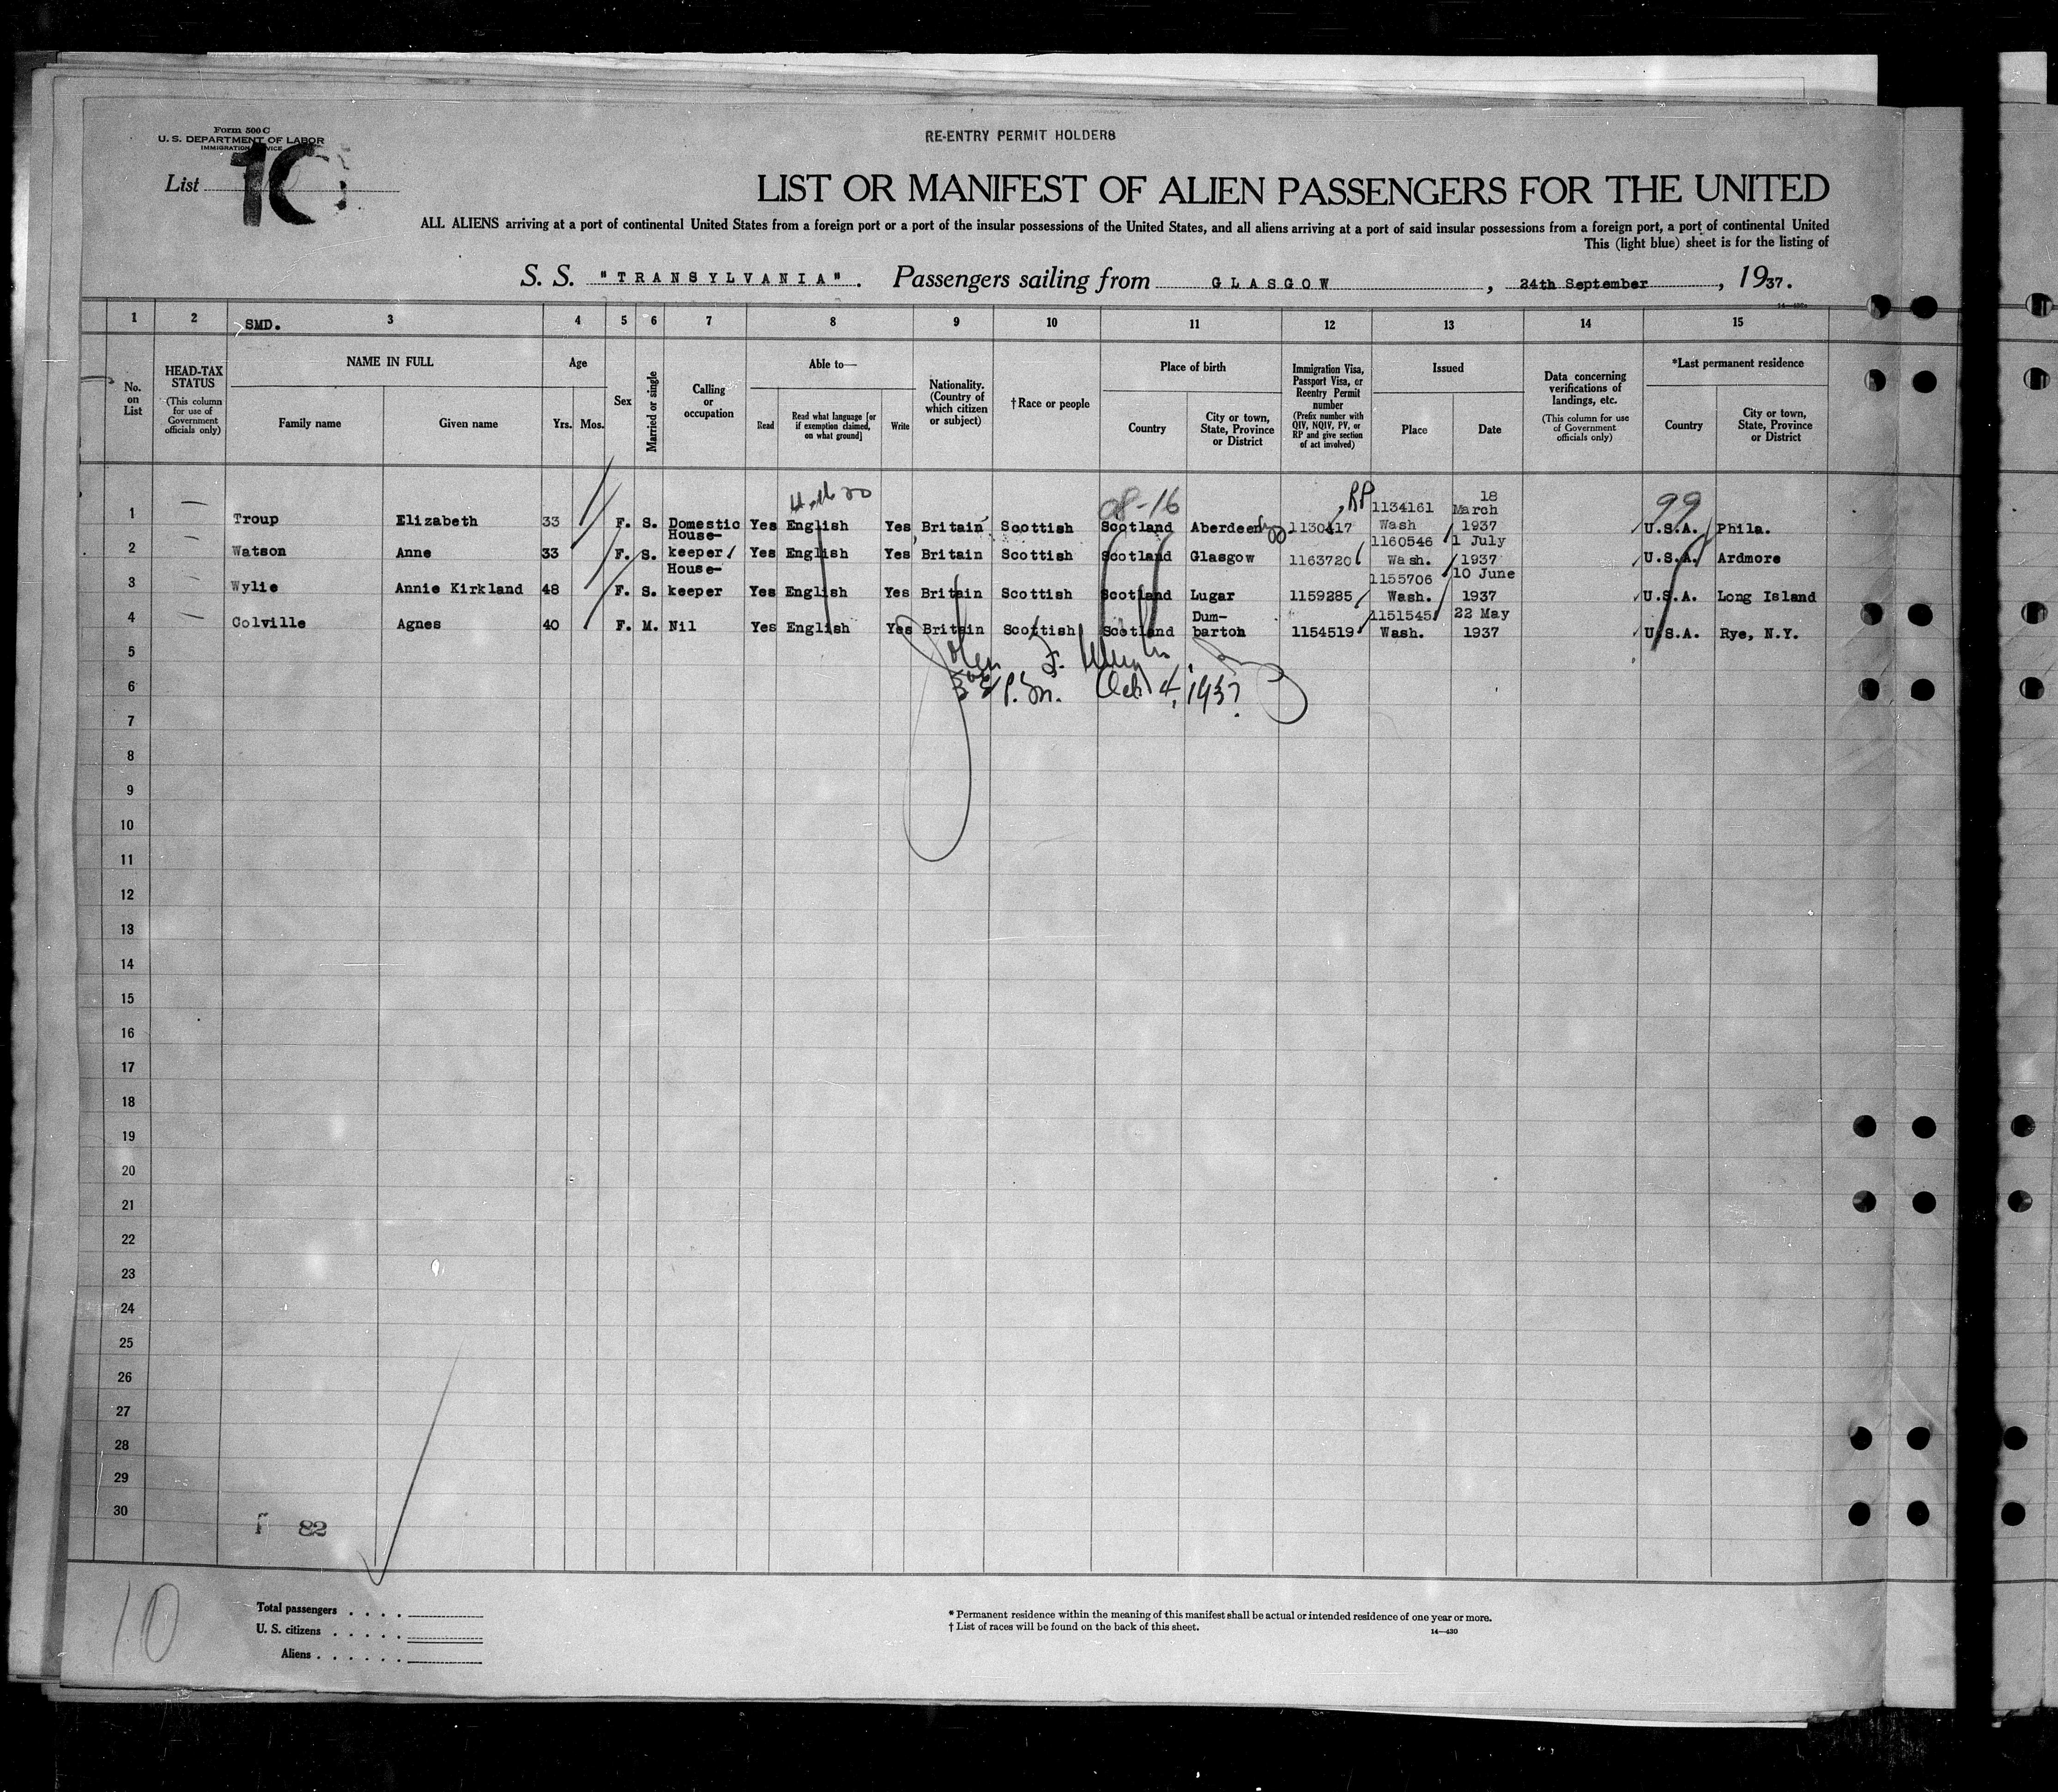 Form 500 C
U. S. DEPARTMENT OF LABOR
IMMIGRATION SERVICE
RE-ENTRY PERMIT HOLDERS
List 10
LIST OR MANIFEST OF ALIEN PASSENGERS FOR THE UNITED
ALL ALIENS arriving at a port of continental United States from a foreign port or a port of the insular possessions of the United States, and all aliens arriving at a port of said insular possessions from a foreign port, a port of continental United
This (light blue) sheet is for the listing of
S. S. "TRANSYLVANIA". Passengers sailing from GLASGOW, 24th September, 1937.
1 2 SMD. 3 4 5 6 7 8 9 10 11 12 13 14 15
No. on List
HEAD-TAX STATUS (This column for use of Government officials only)
NAME IN FULL
Family name Given name
Age
Yrs. Mos.
Sex
Married or single
Calling or occupation
Able to—
Read Read what language [or if exemption claimed, on what ground] Write
Nationality. (Country of which citizen or subject)
†Race or people
Place of birth
Country City or town, State, Province or District
Immigration Visa, Passport Visa, or Reentry Permit number (Prefix number with QIV, NQIV, PV, or RP and give section of act involved)
Issued
Place Date
Data concerning verifications of landings, etc. (This column for use of Government officials only)
*Last permanent residence
Country City or town, State, Province or District
08-16 RP 99
1 Troup Elizabeth 33 F. S. Domestic Yes English Yes Britain Scottish Scotland Aberdeen 1130417 1134161 Wash 18 March 1937 U.S.A. Phila.
2 Watson Anne 33 F. S. House-keeper Yes English Yes Britain Scottish Scotland Glasgow 1163720 1160546 Wash. 1 July 1937 U.S.A. Ardmore
3 Wylie Annie Kirkland 48 F. S. House-keeper Yes English Yes Britain Scottish Scotland Lugar 1159285 1155706 Wash. 10 June 1937 U.S.A. Long Island
4 Colville Agnes 40 F. M. Nil Yes English Yes Britain Scottish Scotland Dum-barton 1154519 1151545 Wash. 22 May 1937 U.S.A. Rye, N.Y.
5
6 P.M. Oct 4, 1937
7
8
9
10
11
12
13
14
15
16
17
18
19
20
21
22
23
24
25
26
27
28
29
30
82
10
Total passengers . . . .
U. S. citizens . . . . .
Aliens . . . . . .
* Permanent residence within the meaning of this manifest shall be actual or intended residence of one year or more.
† List of races will be found on the back of this sheet.
14—430